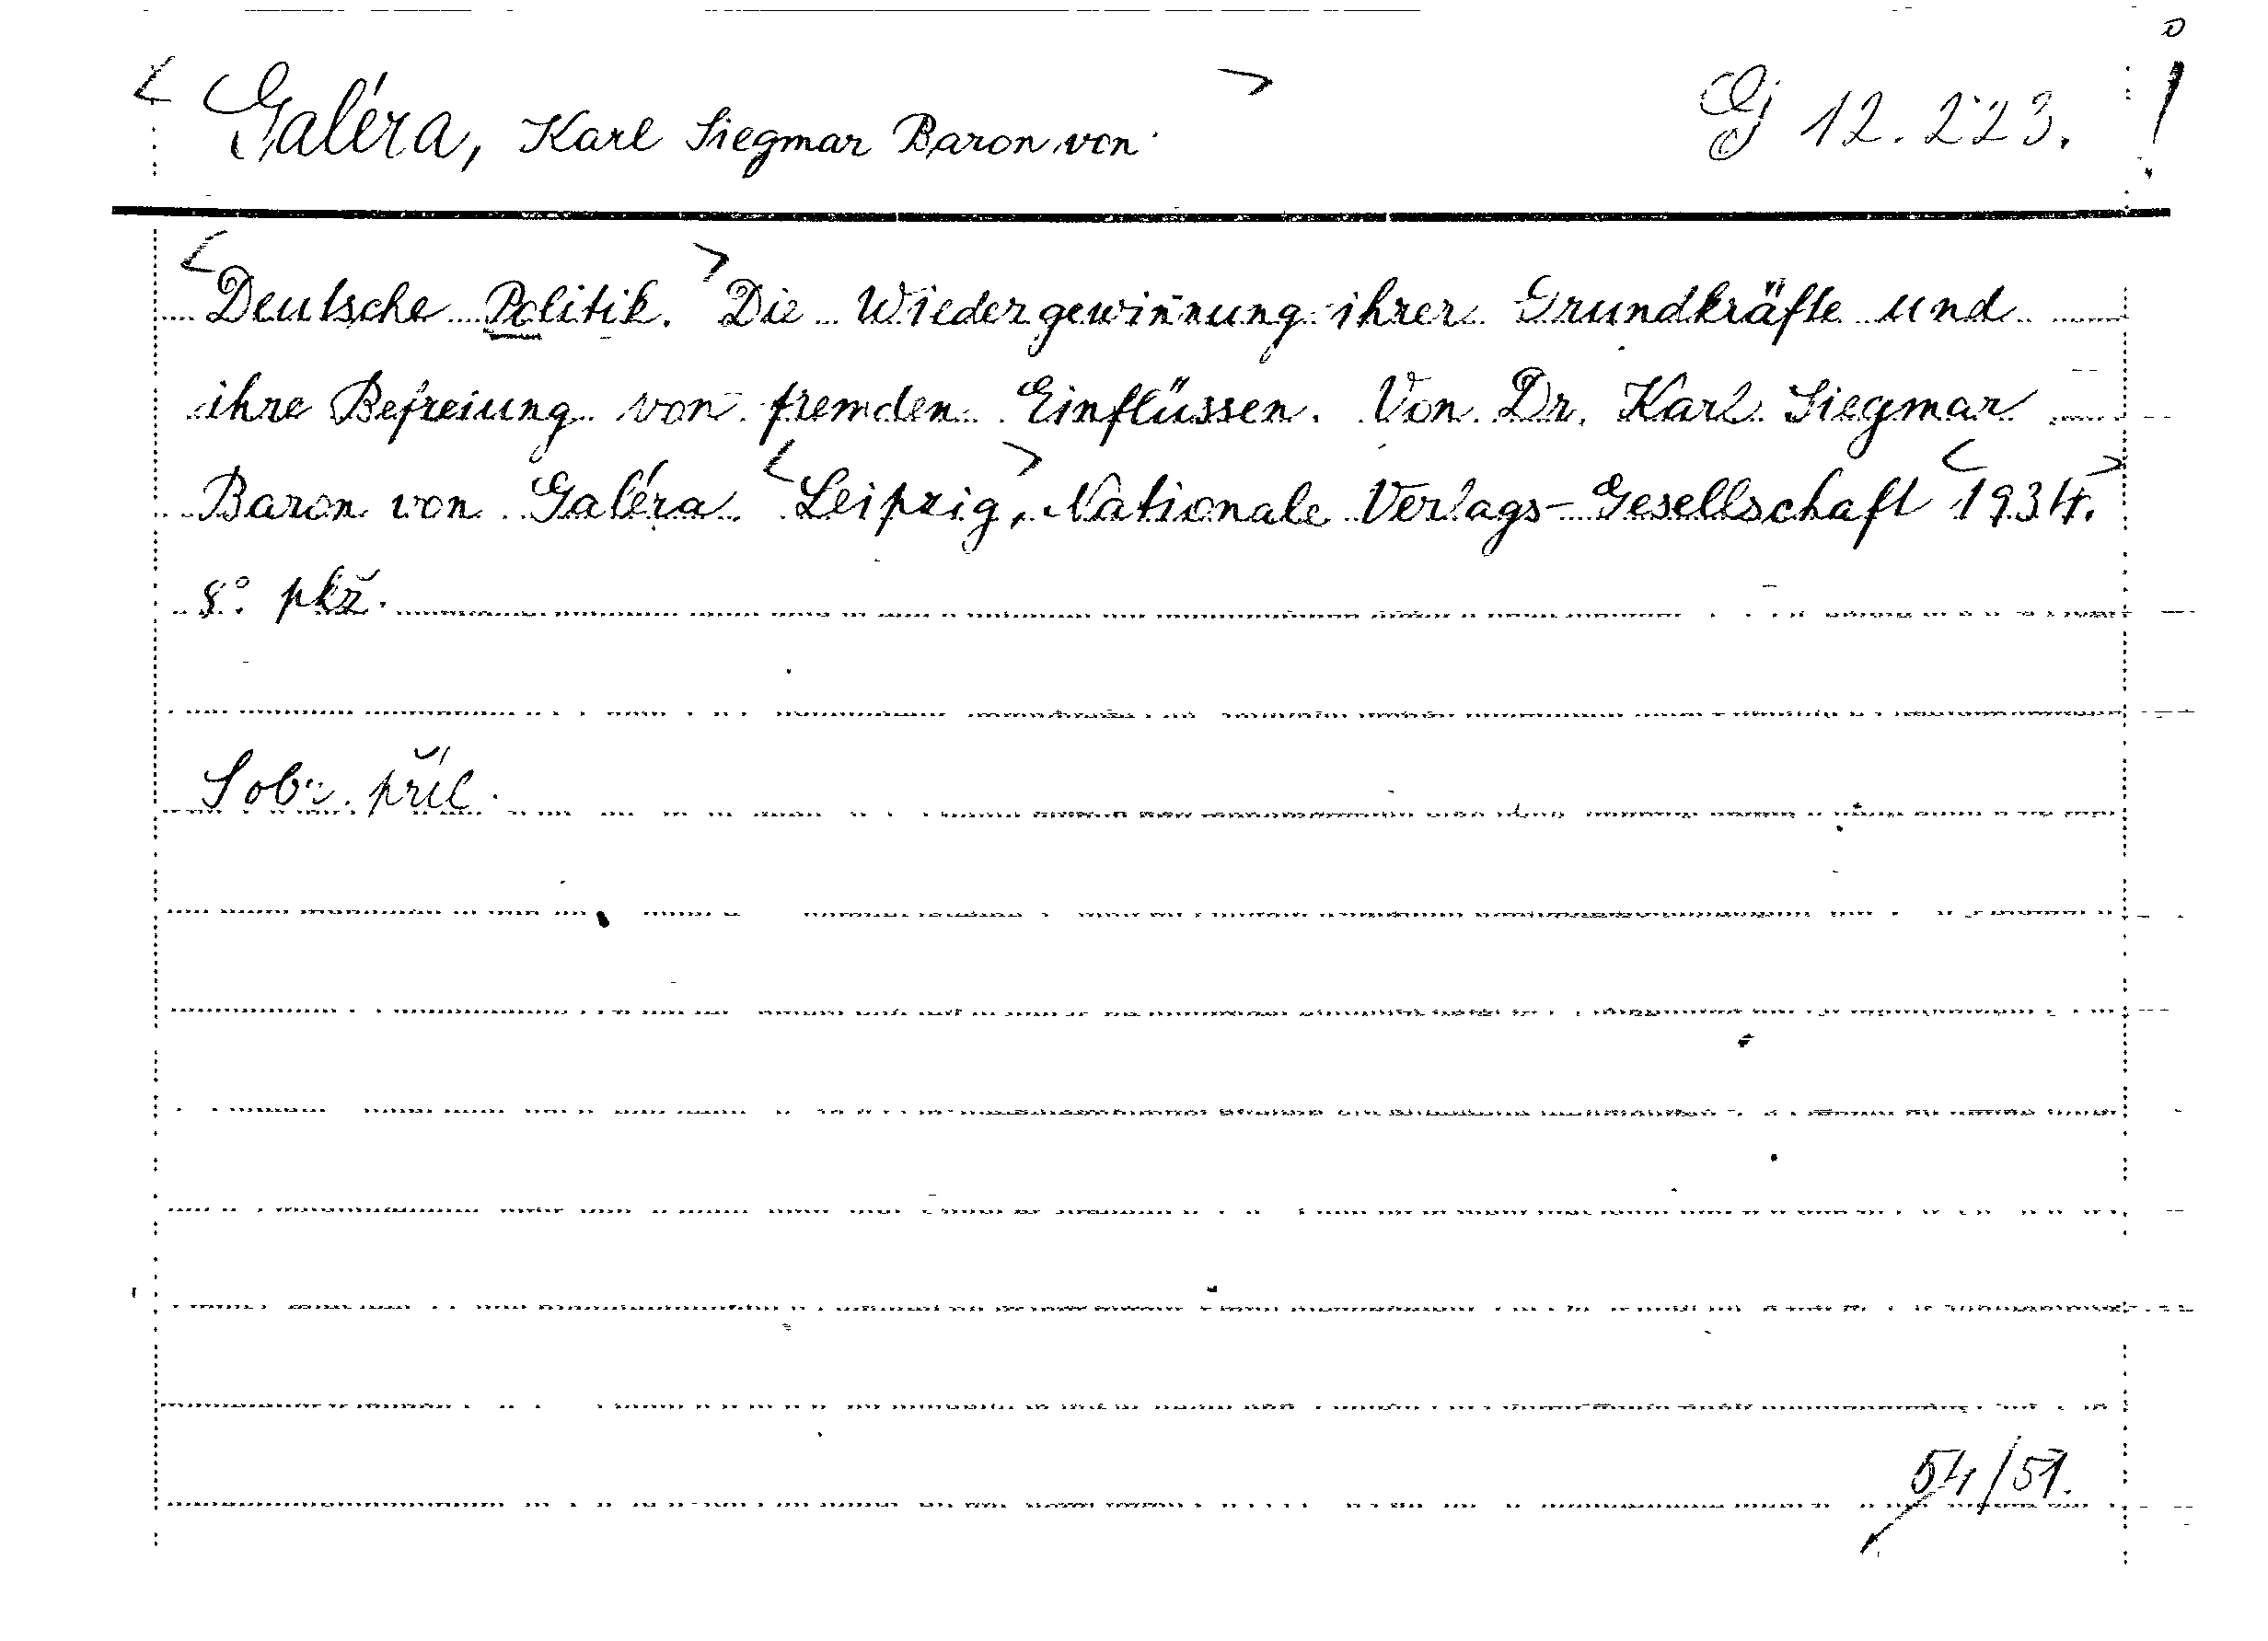 < Galéra, Karl Siegmar Baron von > Gj 12.223. !
<Deutsche Politik.> Die Wiedergewinnung ihrer Grundkräfte und
ihre Befreiung von fremden Einflüssen. Von Dr. Karl Siegmar
Baron von Galéra. <Leipzig,> Nationale Verlags-Gesellschaft <1934.>
8°. pkž.
Sobr. příl.
54/51.